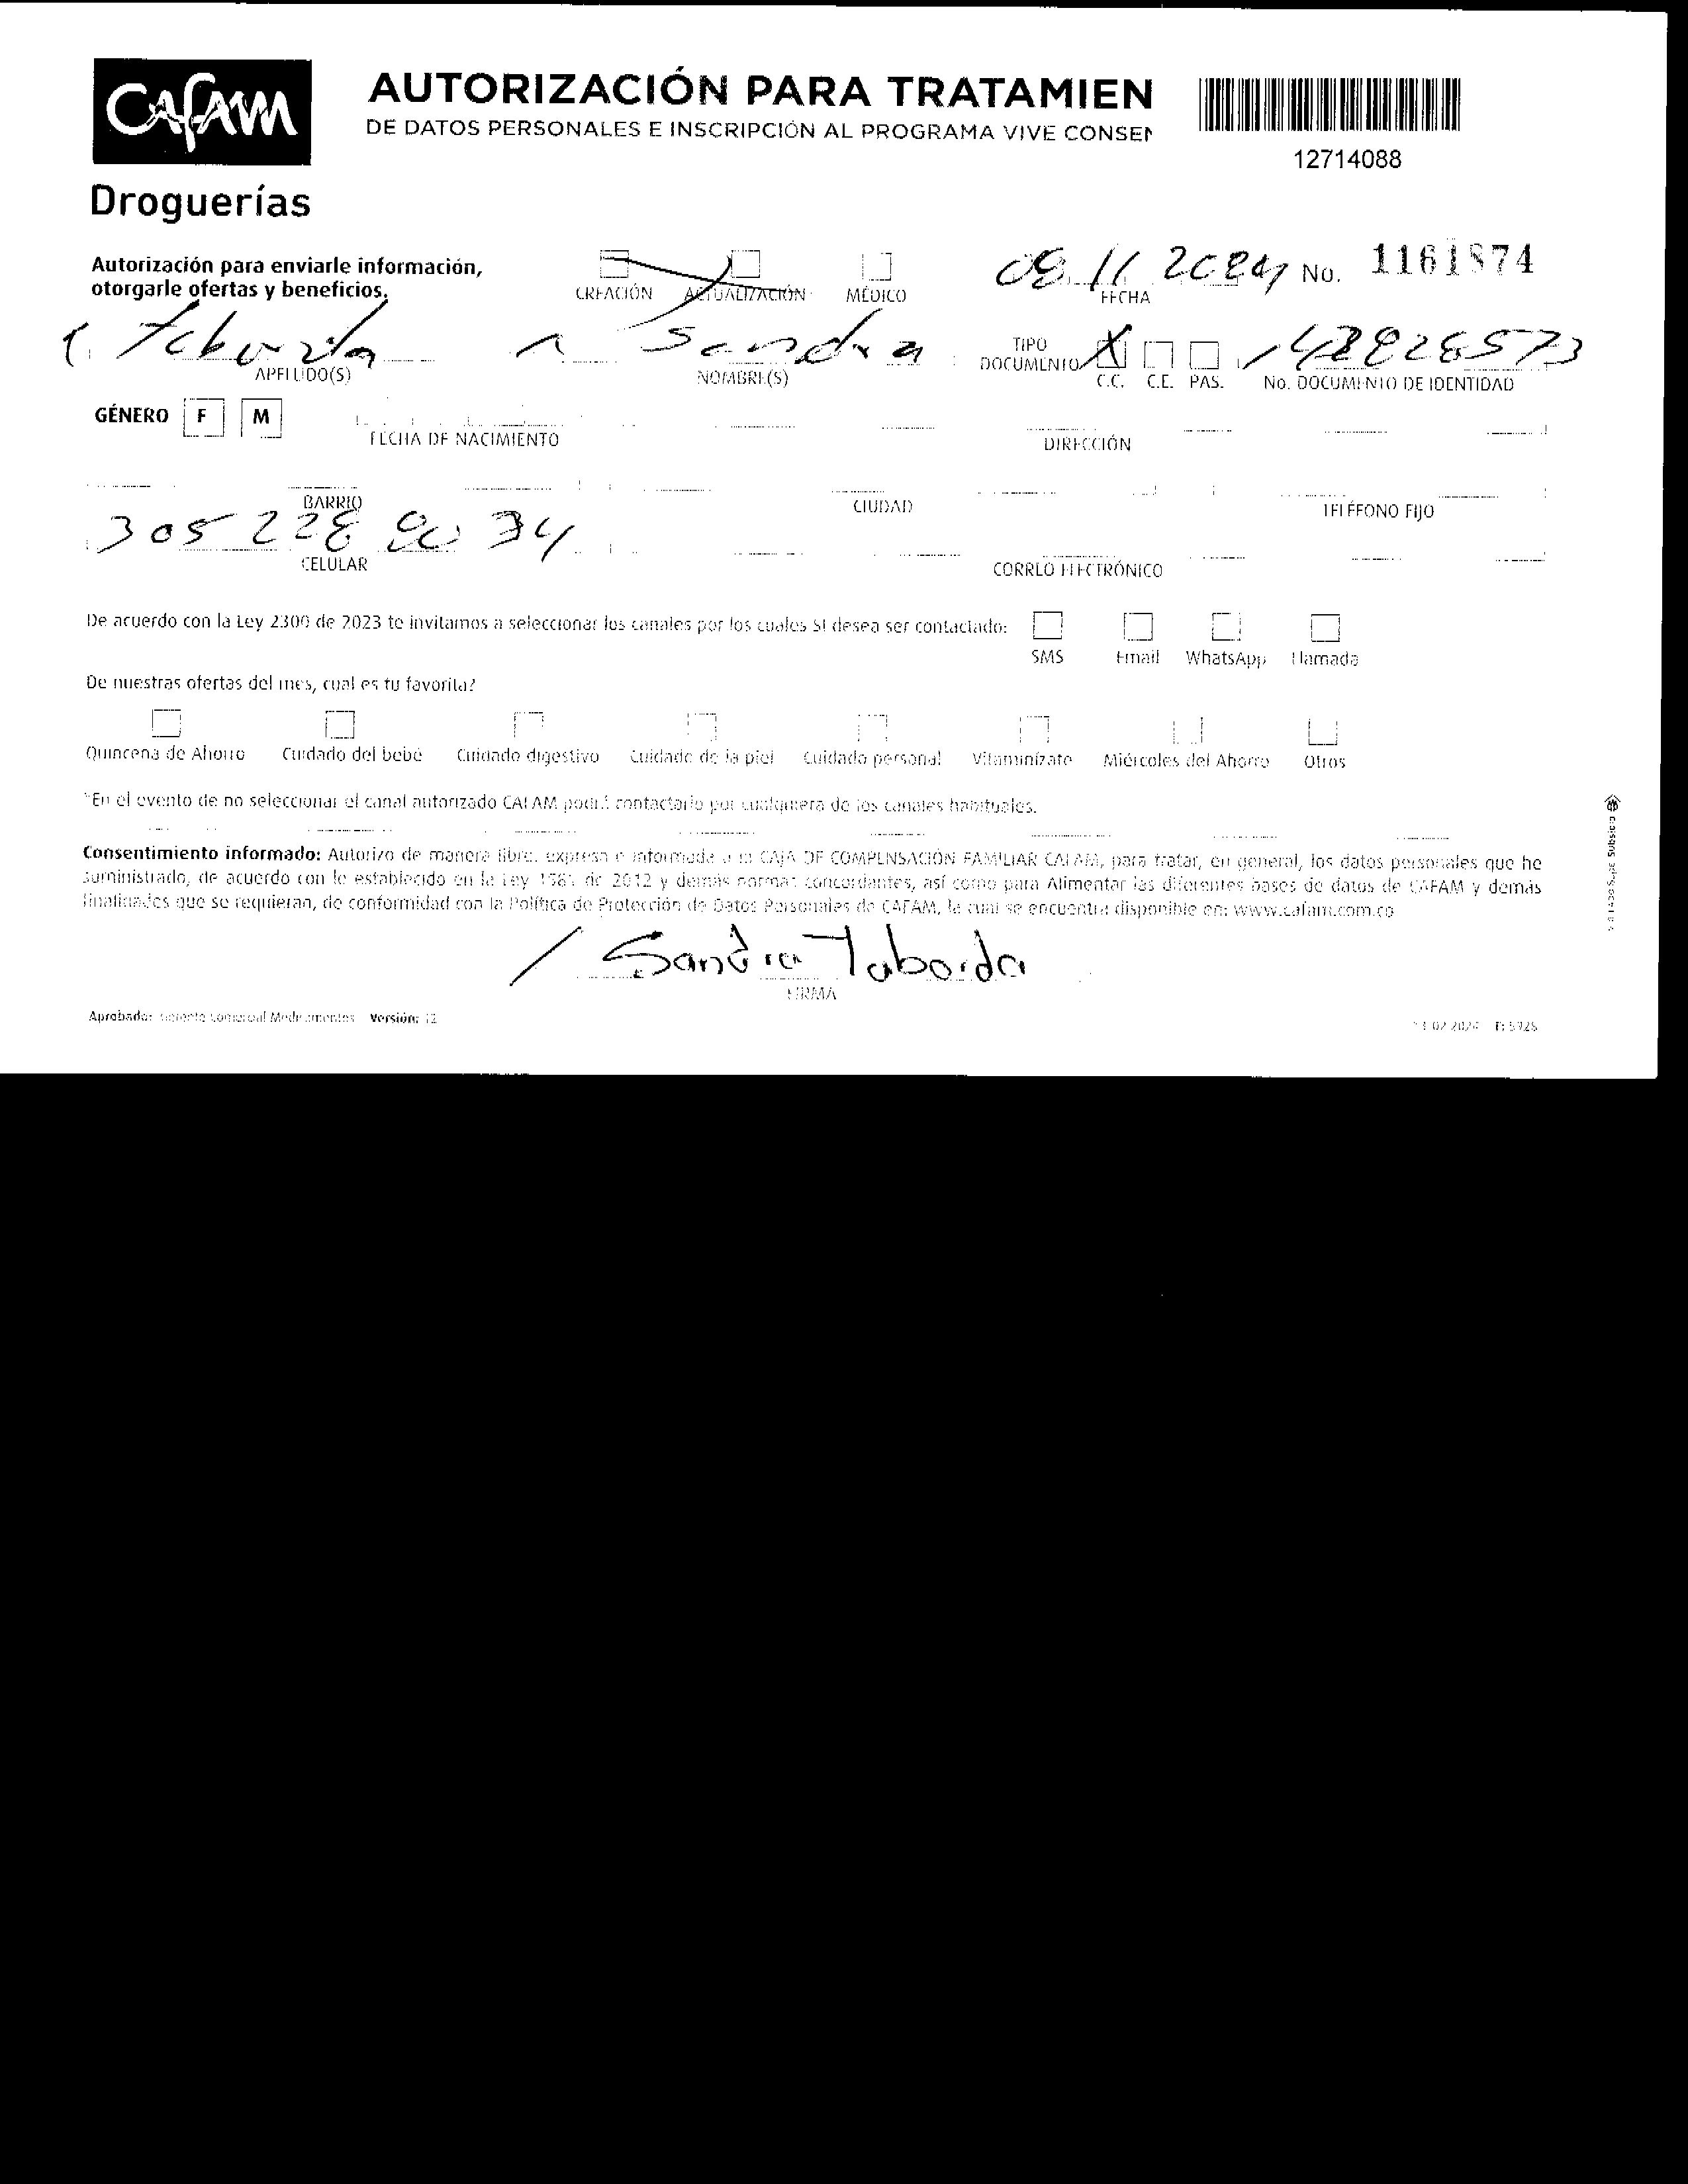 CAFAM
AUTORIZACIÓN PARA TRATAMIEN
DE DATOS PERSONALES E INSCRIPCIÓN AL PROGRAMA VIVE CONSEN
12714088
Droguerías
Autorización para enviarle información,
otorgarle ofertas y beneficios.
CREACIÓN ACTUALIZACIÓN MÉDICO
11 2024 No. 1161874
FECHA
Taborda Sandra
APELLIDO(S) NOMBRE(S)
TIPO
DOCUMENTO X
C.C. C.E. PAS. No. DOCUMENTO DE IDENTIDAD
GÉNERO F M
FECHA DE NACIMIENTO DIRECCIÓN
BARRIO CIUDAD TELÉFONO FIJO
305 228 34
CELULAR CORREO ELECTRÓNICO
De acuerdo con la Ley 2300 de 2023 te invitamos a seleccionar los canales por los cuales SI desea ser contactado:
SMS Email WhatsApp Llamada
De nuestras ofertas del mes, cual es tu favorita?
Quincena de Ahorro Cuidado del bebé Cuidado digestivo Cuidado de la piel Cuidado personal Vitaminízate Miércoles del Ahorro Otros
*En el evento de no seleccionar el canal autorizado CAFAM podrá contactarlo por cualquiera de los canales habituales.
Consentimiento informado: Autorizo de manera libre, expresa e informada a la CAJA DE COMPENSACIÓN FAMILIAR CAFAM, para tratar, en general, los datos personales que he
suministrado, de acuerdo con lo establecido en la Ley 1581 de 2012 y demás normas concordantes, así como para Alimentar las diferentes bases de datos de CAFAM y demás
finalidades que se requieran, de conformidad con la Política de Protección de Datos Personales de CAFAM, la cual se encuentra disponible en: www.cafam.com.co
Sandra Taborda
FIRMA
Aprobado: Gerente Comercial Medicamentos Versión: 12